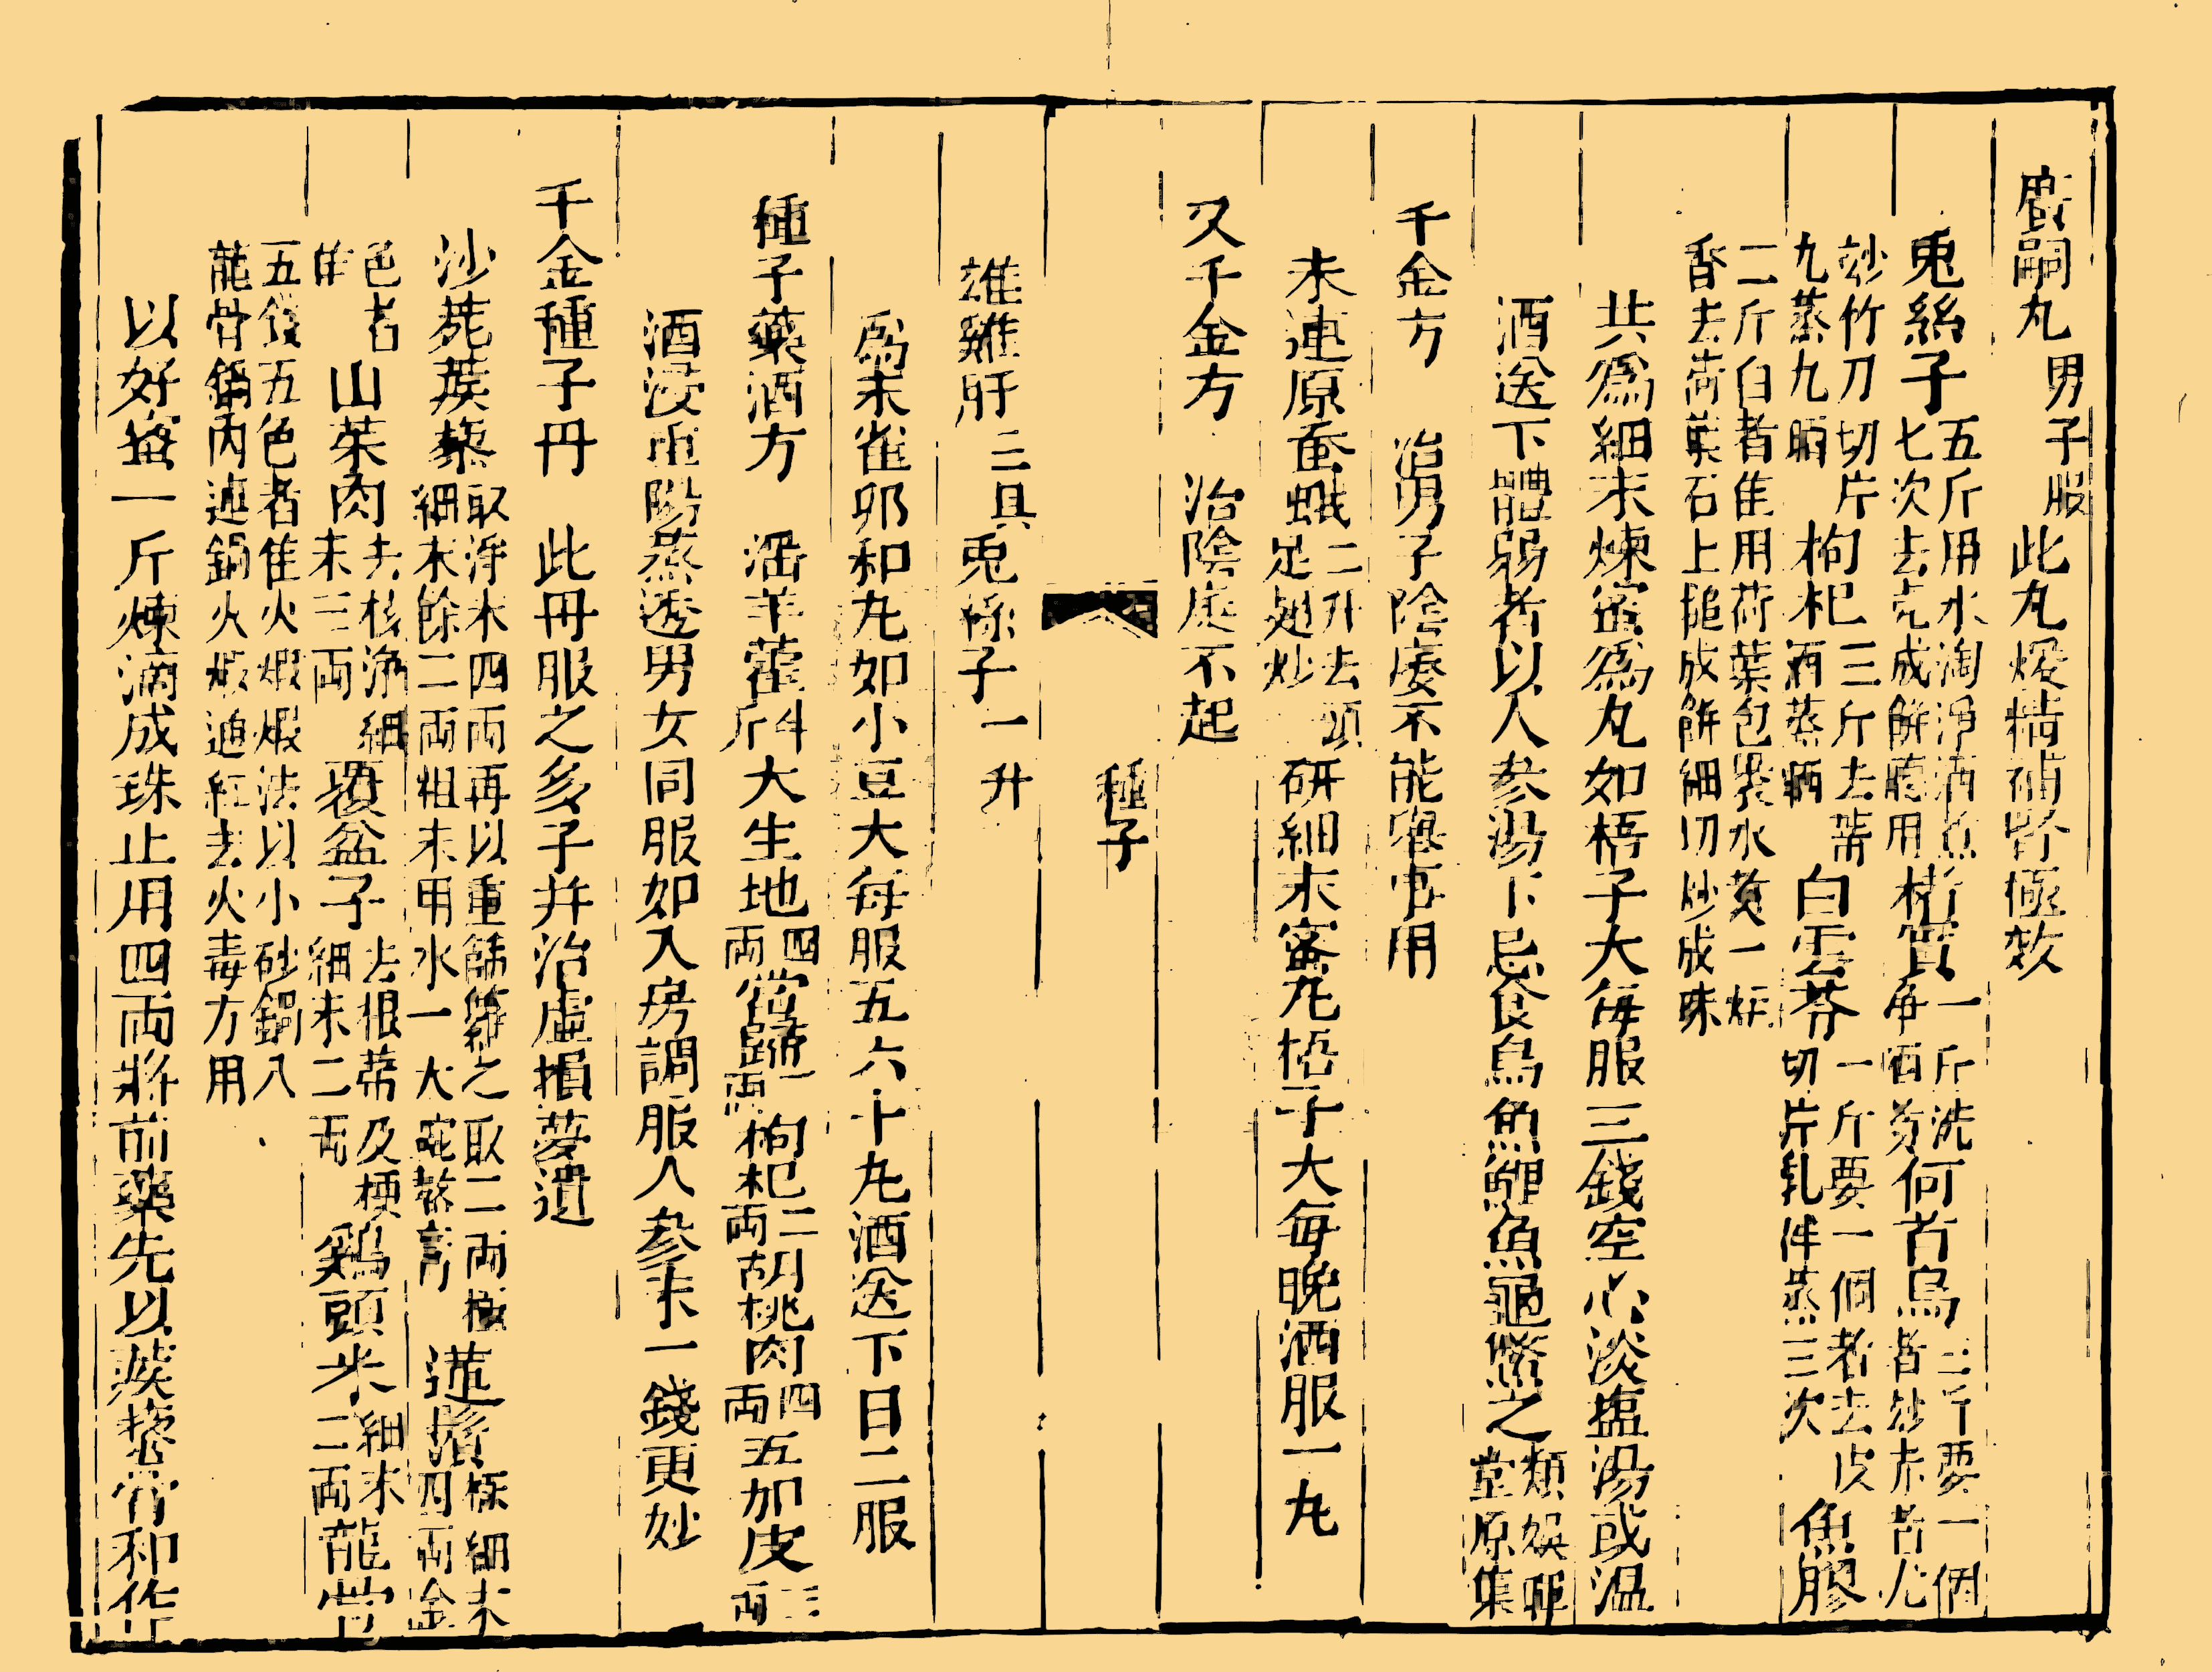 嗣丸男子服此丸煖精補腎極效
兎絲子五斤用水淘淨酒煮七次去壳成餅聽用枳實一斤洗淨何首烏二斤要一個者炒赤者九
竹刀切片九蒸九晒枸杞三斤去蒂酒蒸晒白雲苓一斤要一個者去皮切片乳伴蒸三次魚膠
二斤白者隹用荷葉包裹水煑一炷香去荷葉石上搥成餅細切炒成珠
共爲細末煉蜜爲丸如梧子大每服三錢空心淡塩湯或温
酒送下體弱者以人參湯下忌食烏魚鯉魚龜鱉之類原集
千金方治男子陰痿不能舉事用
未連原蚕蛾二升去頭足翅炒研細末蜜丸梧子大每晚酒服一丸
又千金方治陰痿不起
種子
雄雞肝三具兎絲子一升
爲末雀卵和丸如小豆大每服五六十丸酒送下日二服
種子藥酒方滛羊藿斤大生地四兩當歸二兩枸杞二兩胡桃肉四兩五加皮三兩
酒浸重陽蒸透男女同服如入房調服人參末一錢更妙
千金種子丹此丹服之多子并治虛損夢遺
沙苑蒺藜取淨末四兩再以重篩籮之取二兩極細末餘二兩粗末用水一大碗熬膏蓮鬚極細末四兩金
色者隹山茱肉去核淨細末三兩覆盆子去根蒂及梗細末二兩鷄頭米細末二兩龍骨
五錢五色者隹火煆煆法以小砂鍋入龍骨鍋內連鍋火煆通紅去火毒方用
以好蜜一斤煉滴成珠止用四兩將前藥先以蒺藜膏和作